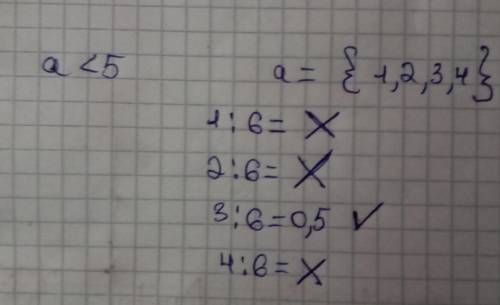 a < 5 a = { 1, 2, 3, 4 }
1 : 6 = X
2 : 6 = X
3 : 6 = 0,5 ✓
4 : 6 = X